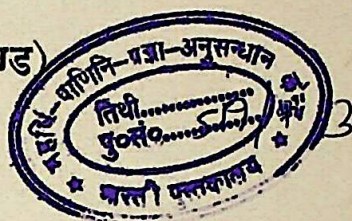 ण्ड)
महर्षि-पाणिनि-प्रज्ञा-अनुसन्धान
तिथी..................
पु०सं०..................
भारती पुस्तकालय